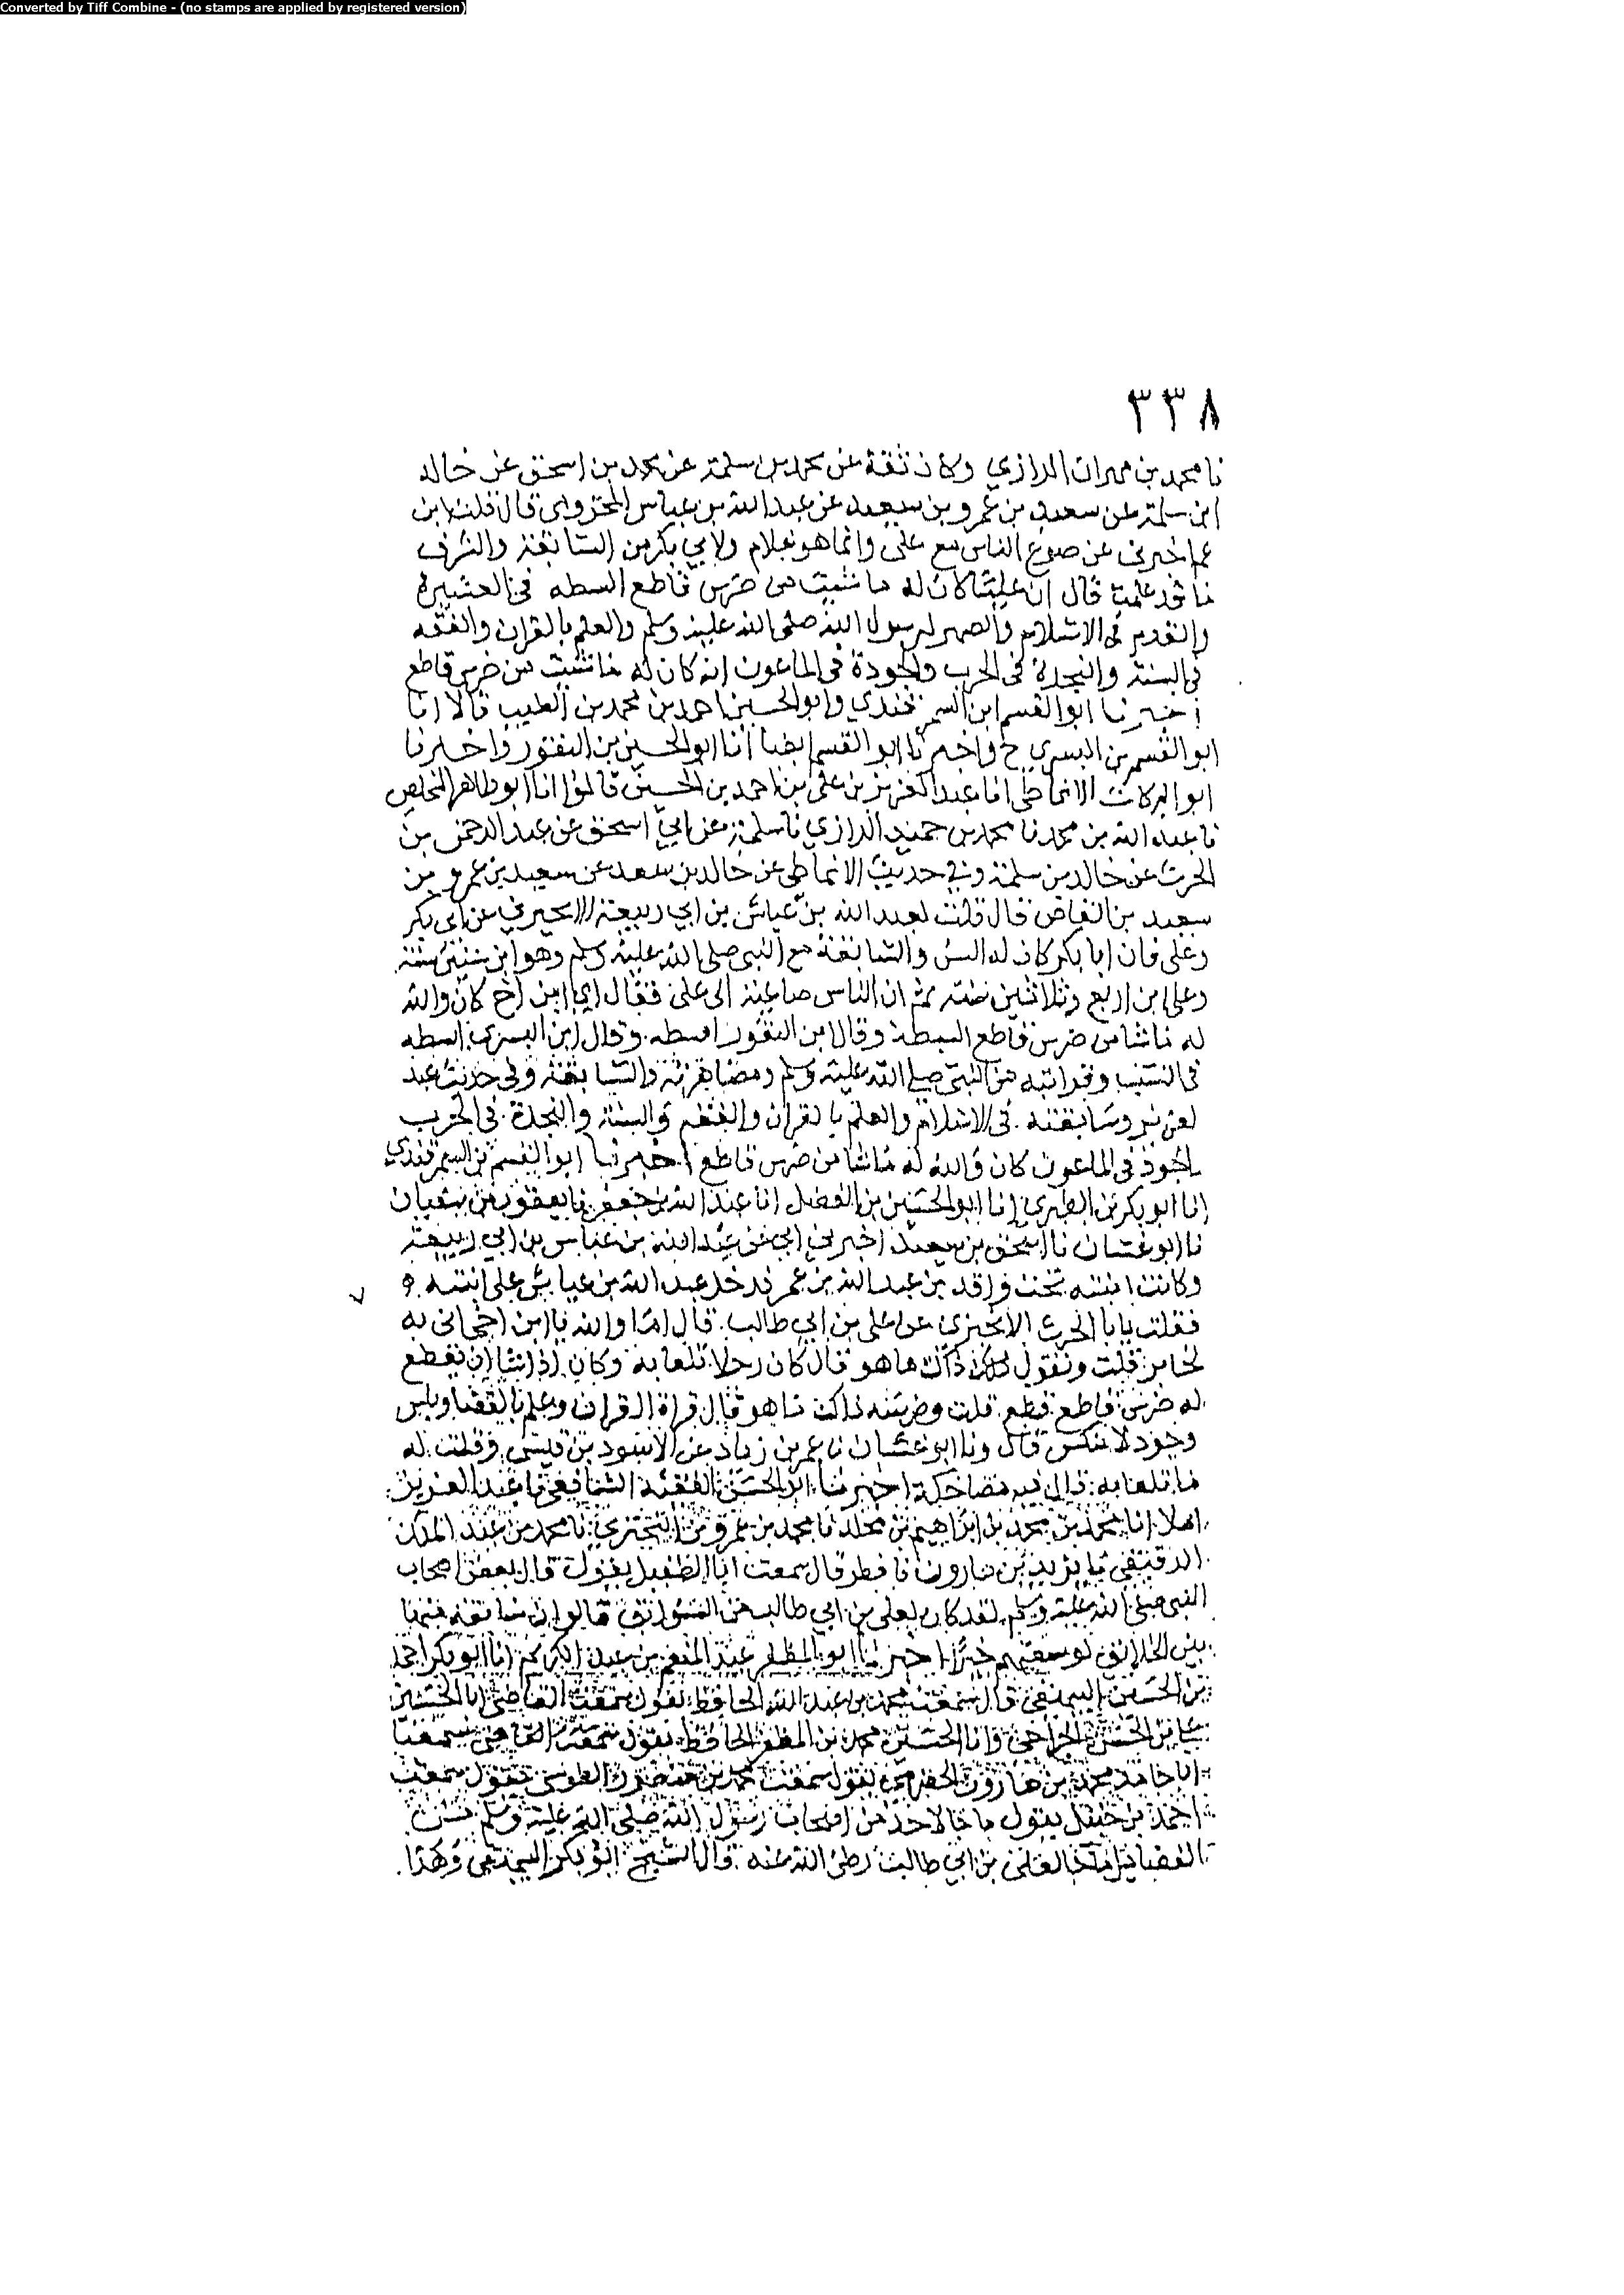 Converted by Tiff Combine - (no stamps are applied by registered version)
٣٣٨
نا محمد بن مهران الرازي وكان ثقة عن محمد بن سلمة عن محمد بن اسحق عن خالد
ابن سلمة عن سعيد بن عمرو بن سعيد عن عبد الله بن عياش المخزومي قال قلت ابن
عم اخبرني عن صغو الناس مع على وانما هو غلام ولابي بكر من السابقة والشرف
ما قد علمت قال ان عليا كان له ما شيت من ضرس قاطع السطه في العشيرة
والقدم في الاسلام والصهر لرسول الله صلى الله عليه وسلم والعلم بالقران والفقه
في السنة والنجدة في الحرب والجودة في الماعون انه كان له ما شيت من ضرس قاطع
اخبرنا ابو القسم ابن السمرقندي وابو الحسين احمد بن محمد بن الطيب قالا انا
ابو القسم بن البسري ح واخبرنا ابو القسم ايضا انا ابو الحسين بن النقور واخبرنا
ابو البركات الانماطي انا عبد العزيز بن على بن احمد بن الحسين قالوا انا ابو طاهر المخلص
نا عبد الله بن محمد نا محمد بن حميد الرازي نا سلمة عن ابي اسحق عن عبد الرحمن بن
الحرث عن خالد بن سلمة وفي حديث الانماطي عن خالد بن سعد عن سعيد بن عمرو بن
سعيد بن العاص قال قلت لعبد الله بن عياش بن ابي ربيعة الا تخبرني عن ابي بكر
وعلى فان ابا بكر كان له السن والسابقة مع النبي صلى الله عليه وسلم وهو ابن ستين سنة
وعلى ابن اربع وثلاثين سنة ثم ان الناس صاغية الى على فقال اي ابن اخ كان والله
له ما شا من ضرس قاطع السطة وقال ابن النقور اسطه وقال ابن البسري السطه
في النسب وقرابته من النبي صلى الله عليه وسلم ومصاهرته والسابقة وفي حديث عبد
العزيز وسابقته في الاسلام والعلم بالقران والفقه والسنة والنجدة في الحرب
والجود في الماعون كان والله له ما شا من ضرس قاطع اخبرنا ابو القسم بن السمرقندي
انا ابو بكر بن الطبري انا ابو الحسين بن الفضل انا عبد الله بن جعفر نا يعقوب بن سفيان
نا ابو غسان نا اسحق بن سعيد اخبرني ابي عن عبد الله بن عياش بن ابي ربيعة
وكانت ابنته تحت واقد بن عبد الله بن عمر فدخل عبد الله بن عياش على ابنته
فقلت يابا الحرث الا تخبرني عن على بن ابي طالب قال اما والله يا ابن اخي اني به
لخابر قلت وتقول ذاك ما هو قال كان رجلا تلعابه وكان اذا شا ان يقطع
له ضرس قاطع قطع قلت وضرسه ذاك ما هو قال قراة القران وعلم بالقضا وباس
وجود لا ينكس قال ونا ابو غسان نا عمر بن زياد عن الاسود بن قيس وقلت له
ما تلعابه قال فيه مضاحكة اخبرنا ابو الحسن الفقيه الشافعي نا عبد العزيز
املا انا محمد بن محمد بن ابراهيم بن مخلد نا محمد بن عمرو بن البختري نا محمد بن عبد الملك
الدقيقي نا يزيد بن هارون نا فطر قال سمعت ابا الطفيل يقول قال بعض اصحاب
النبي صلى الله عليه وسلم لقد كان لعلى بن ابي طالب من السوابق ما لو ان سابقة منها
بين الخلايق لوسعتهم خيرا اخبرنا ابو المظفر عبد المنعم بن عبد الكريم انا ابو بكر احمد
بن الحسين البيهقي قال سمعت محمد بن عبد الله الحافظ يقول سمعت القاضي ابا الحسن
على بن الحسن الجراحي وابا الحسين محمد بن المظفر الحافظ يقول سمعنا
ابا حامد محمد بن هارون الحضرمي يقول سمعت محمد بن منصور الطوسي يقول سمعت
احمد بن حنبل يقول ما جا لاحد من اصحاب رسول الله صلى الله عليه وسلم من
الفضايل ما جا لعلى بن ابي طالب رضى الله عنه قال الشيخ ابو بكر البيهقي وهذا